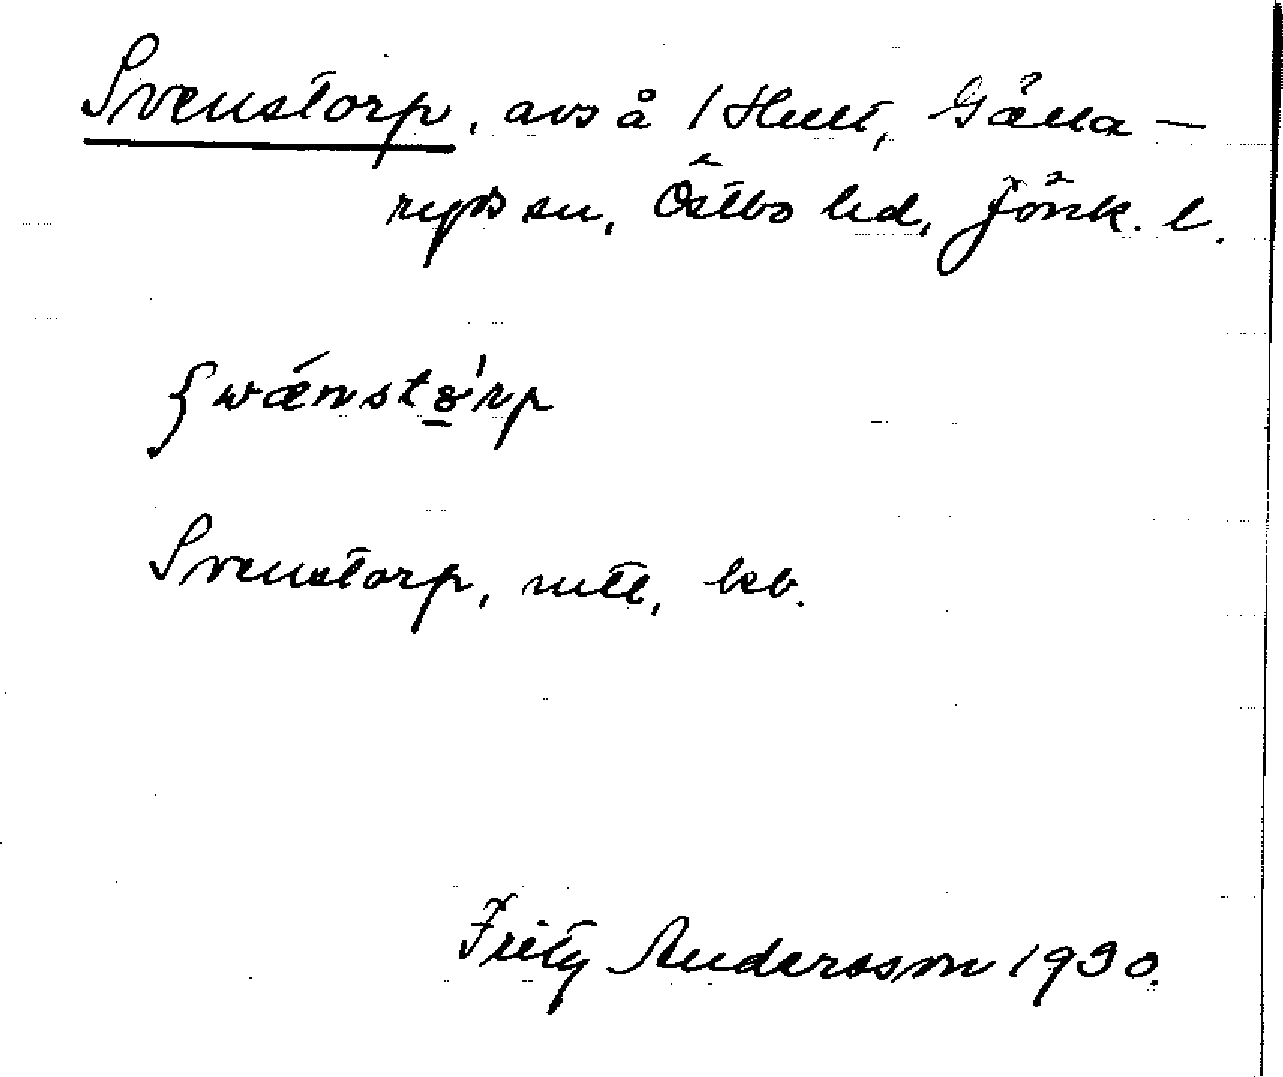 Svenstorp, avs å 1 Hult, Gälla-
ryds sn, Östbo hd, Jönk. l.
swænstórp
Svenstorp, mtl, ksb.
Fritz Andersson 1930.